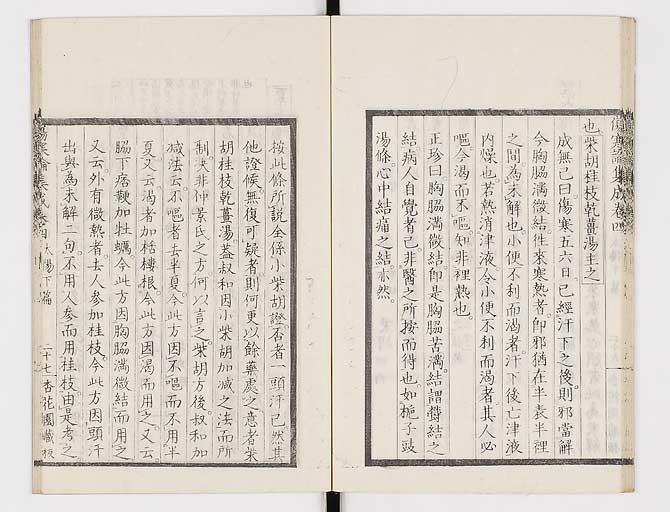 傷寒論集成卷四
也柴胡桂枝乾薑湯主之
成無已曰傷寒五六日已經汗下之後則邪當解
今胸脇滿微結往來寒熱者卽邪猶在半表半裡
之間為未解也小便不利而渴者汗下後亡津液
內燥也若熱消津液令小便不利而渴者其人必
嘔今渴而不嘔知非裡熱也
正珍曰胸脇滿微結卽是胸脇苦滿結謂鬱結之
結病人自覺者已非醫之所按而得也如梔子豉
湯條心中結痛之結亦然
按此條所說全係小柴胡證否者一頭汗已然其
他證候無復可疑者則何更以餘藥處之意者柴
胡桂枝乾薑湯蓋叔和因小柴胡加減之法而所
制決非仲景氏之方何以言之柴胡方後叔和加
減法云不嘔者去半夏今此方因不嘔而不用半
夏又云渴者加栝樓根今此方因渴而用之又云
脇下痞鞕加牡蠣今此方因胸脇滿微結而用之
又云外有微熱者去人參加桂枝今此方因頭汗
出與為未解二句不用人參而用桂枝由是考之
傷寒論集成卷四 太陽下篇 二十七 杏花園藏板